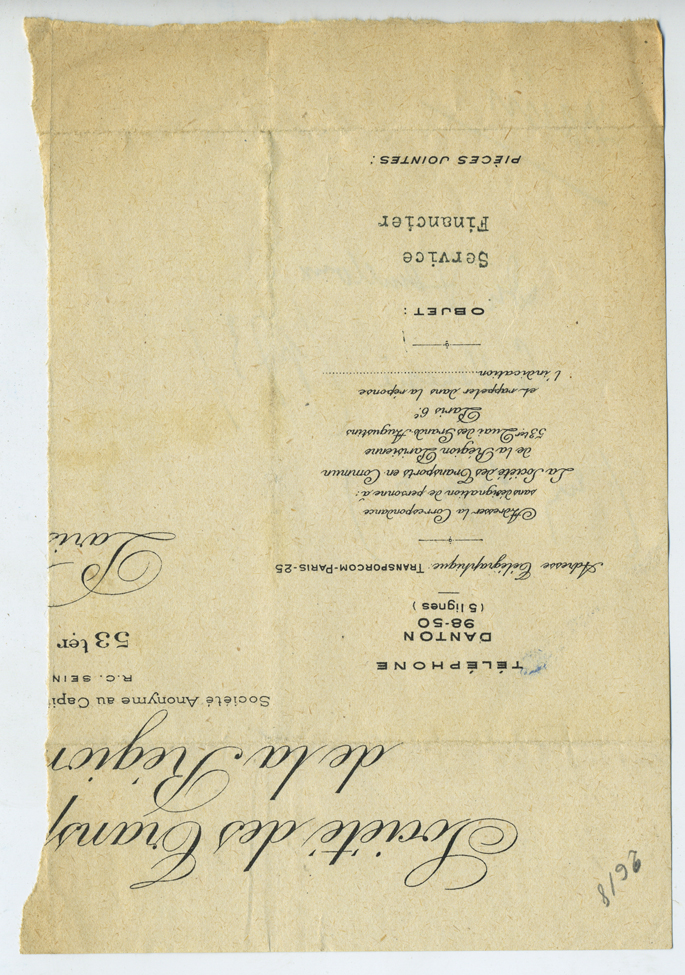 Société des Transp
de la Région
Société Anonyme au Capi
R.C. SEIN
53 ter
Paris
TÉLÉPHONE
DANTON
98-50
(5 lignes)
Adresse Télégraphique TRANSPORCOM-PARIS-25
Adresser la Correspondance
sans désignation de personne à:
La Société des Transports en Commun
de la Région Parisienne
53 ter Quai des Grands Augustins
Paris 6e
et rappeler dans la réponse
l'indication
OBJET :
Service
Financier
PIÈCES JOINTES :